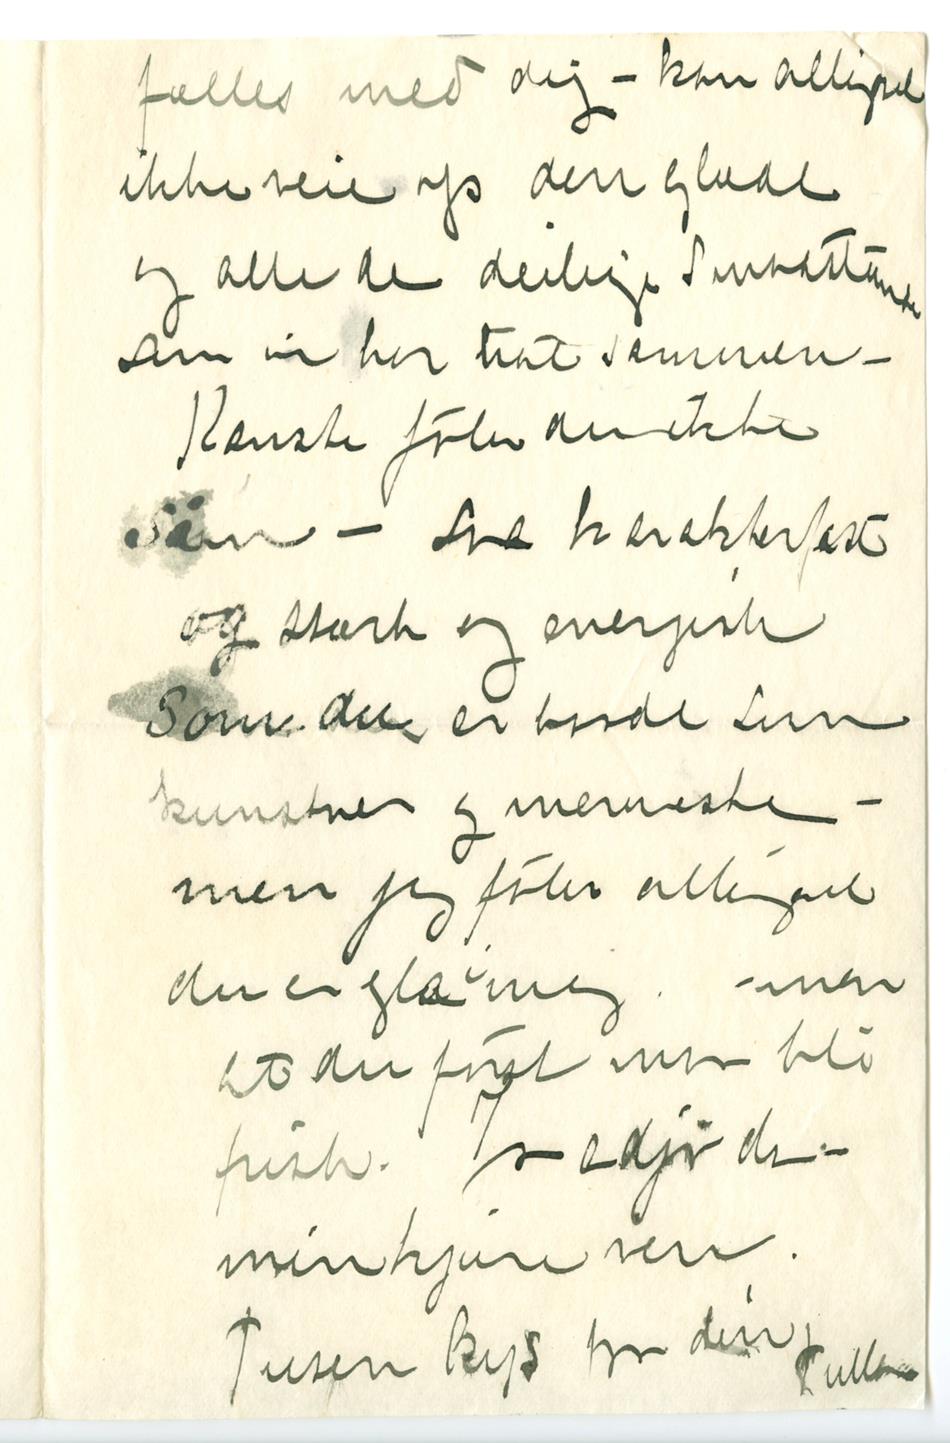 fælles med dig – kan alligevel
ikke veie op den glæde
og alle de deilige
som vi har hat sammen –
Kanske föler du ikke
sån – saa karakterfast
og stærk og energisk
som du er baade som
kunstner og menneske –
men jeg föler alligevel
du er gla' i meg. – men
at du först maa bli
frisk. Saa adjö da –
min kjære ven.
Tusen kys fra din Tulla